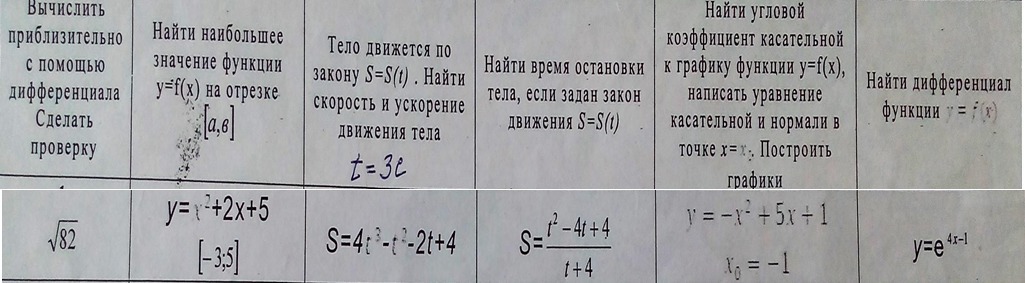 Вычислить
приблизительно
с помощью
дифференциала
Сделать
проверку
Найти наибольшее
значение функции
y=f(x) на отрезке
[a,в]
Тело движется по
закону S=S(t) . Найти
скорость и ускорение
движения тела
t=3c
Найти время остановки
тела, если задан закон
движения S=S(t)
Найти угловой
коэффициент касательной
к графику функции y=f(x),
написать уравнение
касательной и нормали в
точке x=x₀. Построить
графики
Найти дифференциал
функции y = f(x)
√82
y=x²+2x+5
[−3;5]
S=4t³-t²-2t+4
S=(t²−4t+4)/(t+4)
y = −x² + 5x + 1
x₀ = −1
y=e⁴ˣ⁻¹